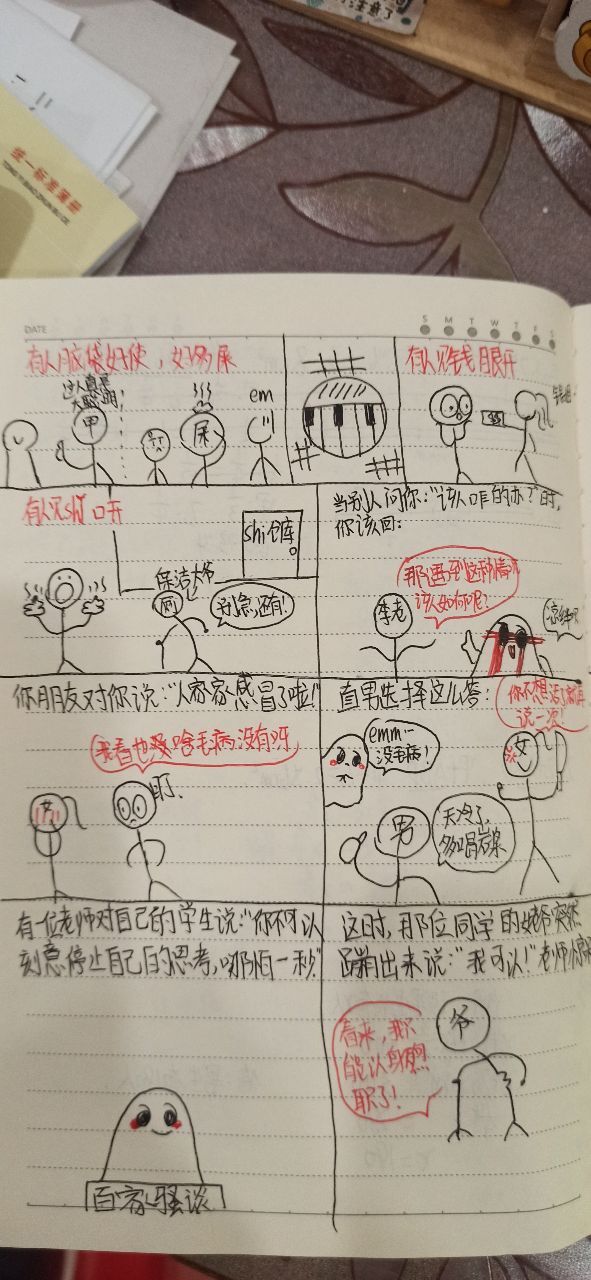 注意了
统一标准簿册
DATE
S M T W T F S
有人脑袋好使，好多屎
这人真是
大聪明！
甲
屎
em
有人见钱眼开
有人见shi口开
shi仓库
保洁大爷
别急,还有!
当别人问你:“该人咋的办?”时,
你该回:
那遇到这种情况
该人如何呢?
李老
凉拌呗
你朋友对你说:“人家家感冒了啦!”
我看也没啥毛病没有呀
女
盯、
直男选择这么答:
你不想活了就再
说一次!
emm…
没毛病!
女
男
天冷了,
多喝岩浆
有一位老师对自己的学生说:“你不可以
刻意停止自己的思考,哪怕一秒.”
百客骚谈
这时,那位同学的爷爷突然
蹦出来说:“我可以!”老师
爷
看来,我只
能认
职了!